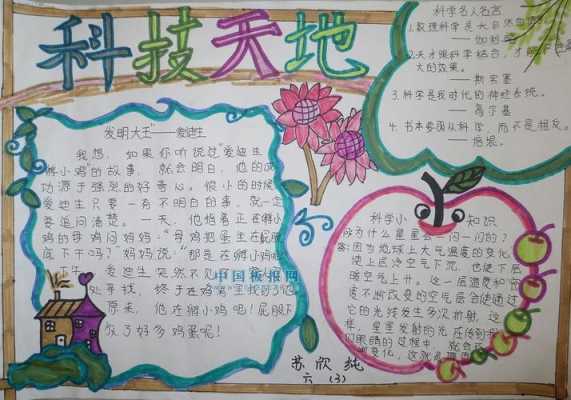 科技天地
发明大王"——爱迪生
我想，如果你听说过"爱迪生
孵小鸡"的故事，就会明白，他的成
功源于强烈的好奇心。很小的时候
爱迪生只要一有不明白的事，就一定
要追问清楚。一天，他指着正在孵小
鸡的母鸡问妈妈："母鸡把蛋坐在屁股
底下干吗？"妈妈说："那是在孵小鸡呢
爱迪生突然不见了
处寻找，终于在鸡窝里找到了他
原来，他在孵小鸡呢！屁股下
放了好多鸡蛋呢！
中国板报网
科学名人名言
1.数理科学是大自
——伽利略
2.天才跟科学结合，才能
大的效果。
——斯宾塞
3.科学是我时代的神经系统。
——高尔基
4.书本要顺从科学，而不是相反。
——培根。
科学小知识
为什么星星会一闪一闪的？
答：因为地球上大气温度的变化
使上层冷空气下沉，也使下层
暖空气上升。这一层温度和密
度不断改变的空气层会使通过
它的光线发生多次折射，这
样，星星发射的光在传到我
们眼睛的过程中，就会
变化，这就是
苏欣纯
六（3）